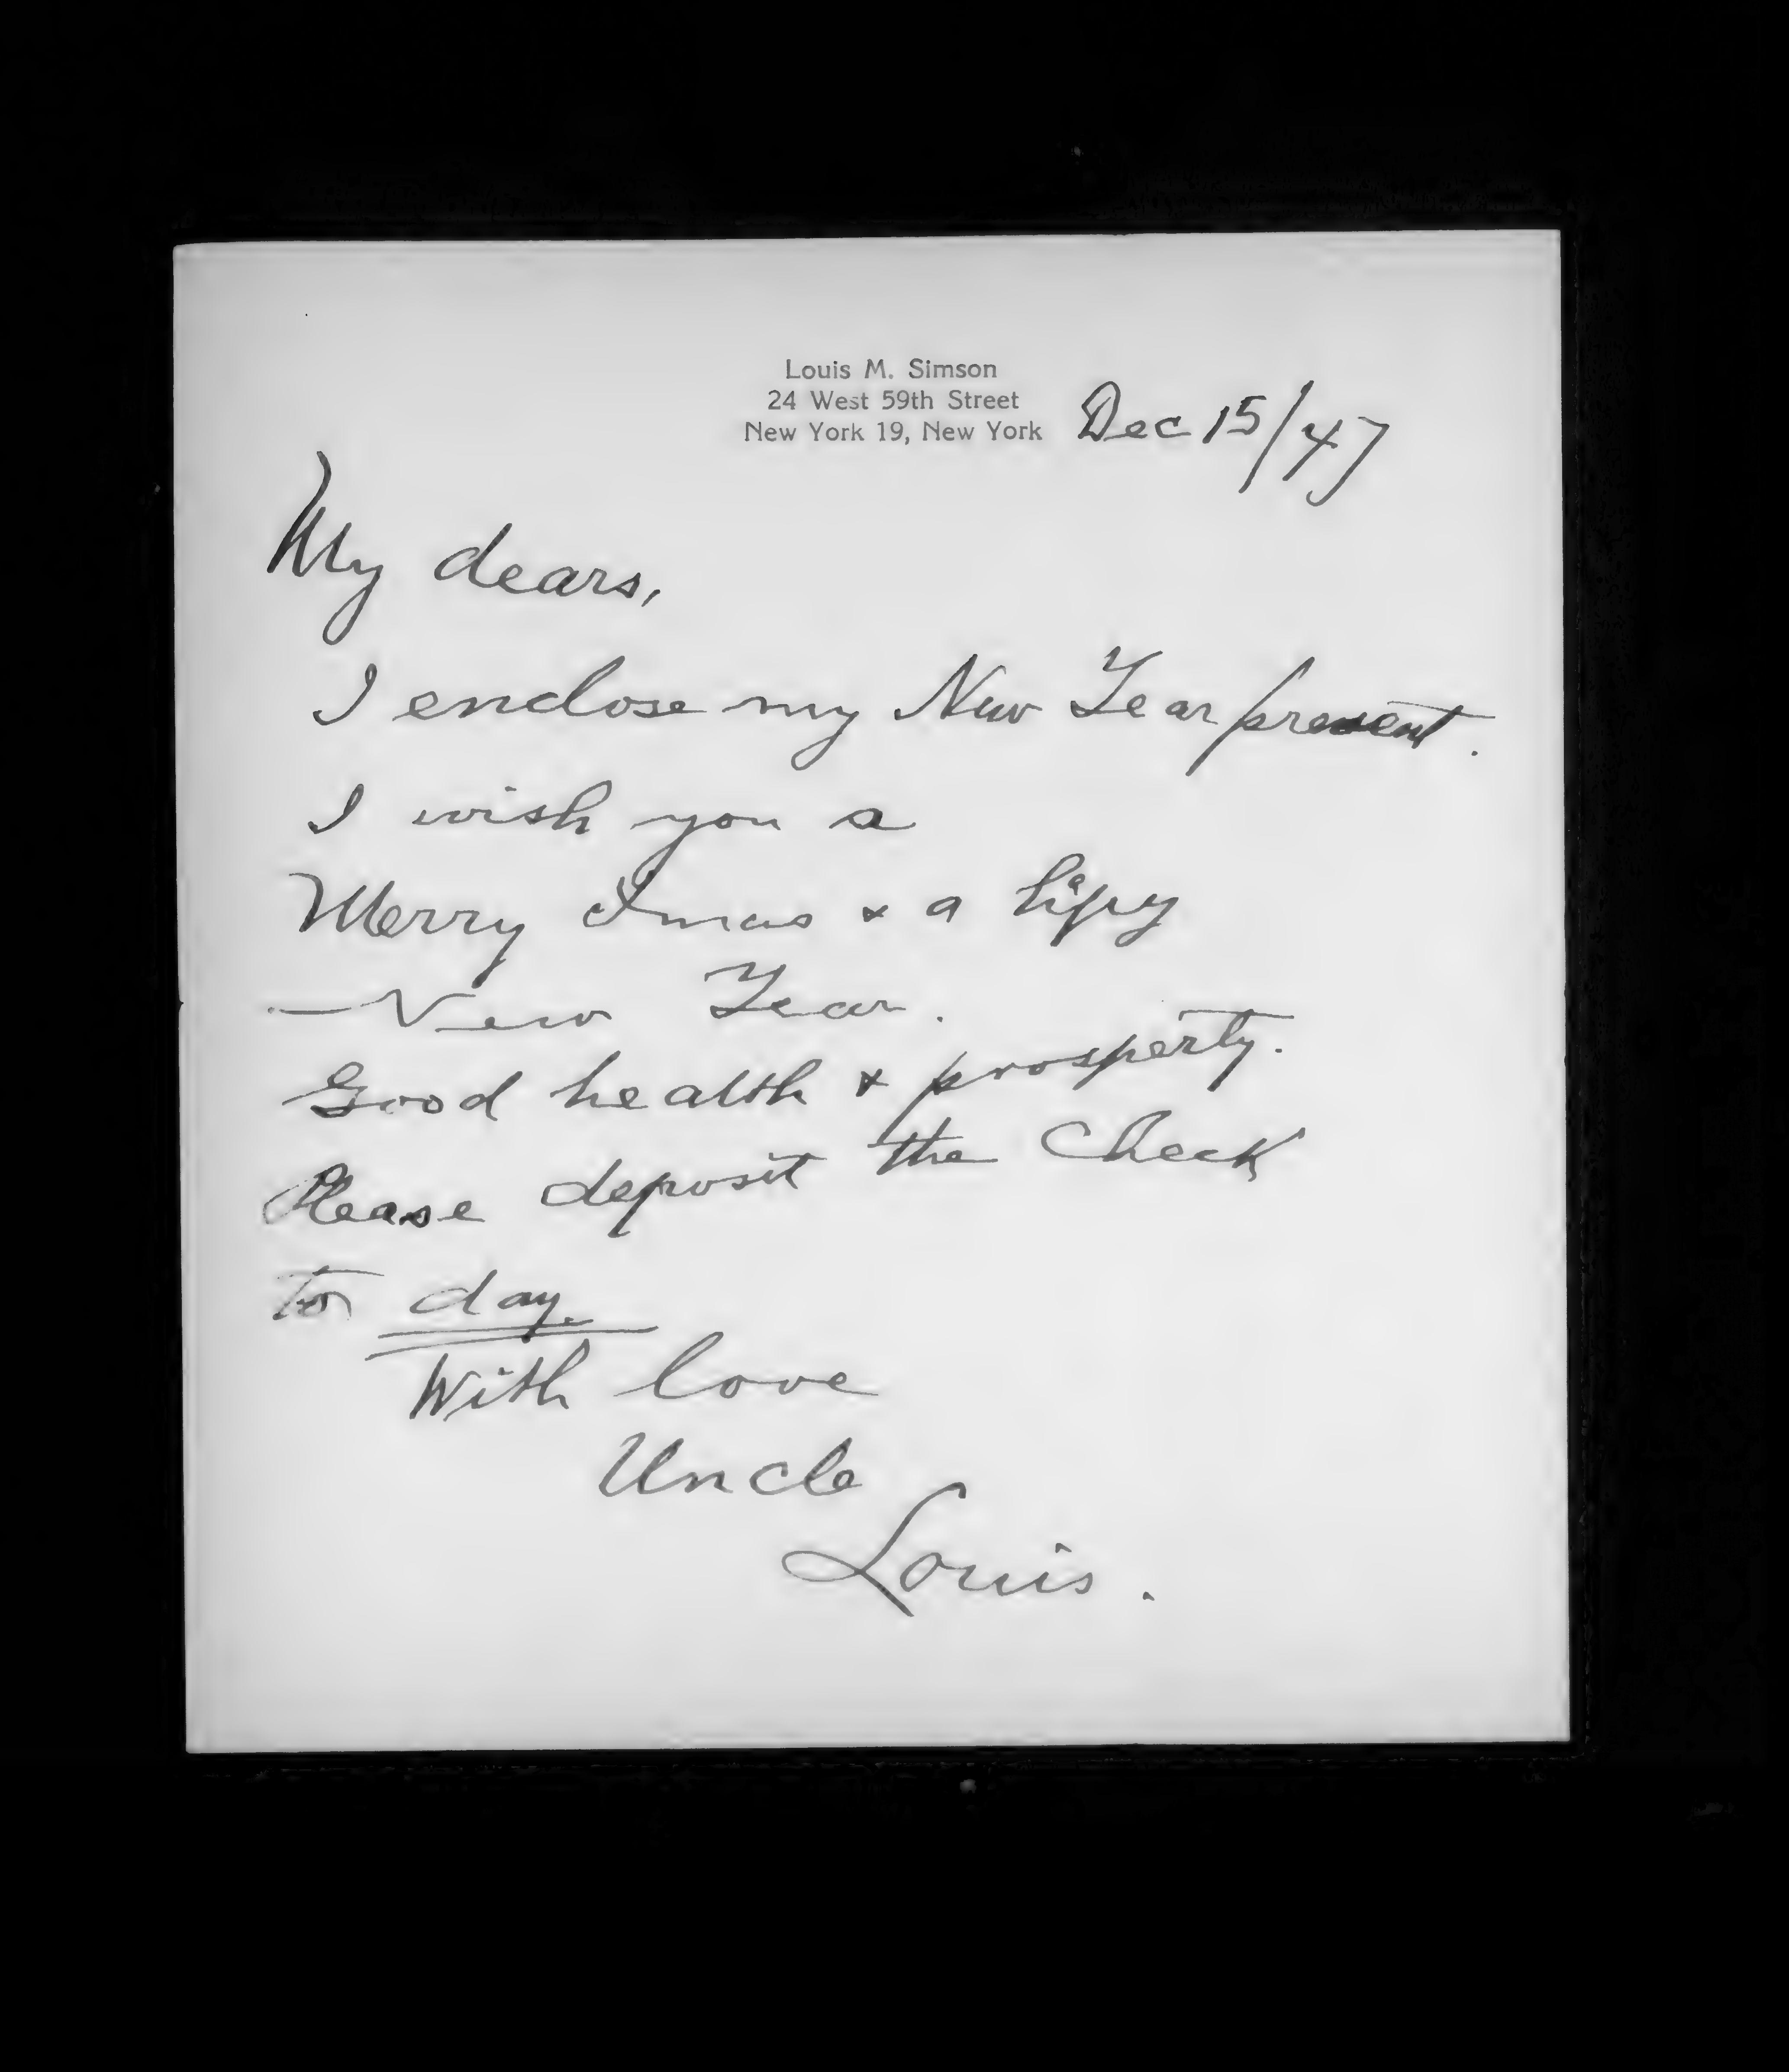 Louis M. Simson
24 West 59th Street
New York 19, New York
Dec 15/47
My dears,
I enclose my New Year present.
I wish you a
Merry Xmas & a hapy
New Year.
Good health & prosperty.
Please deposit the Check
to day.
With love
Uncle
Louis.